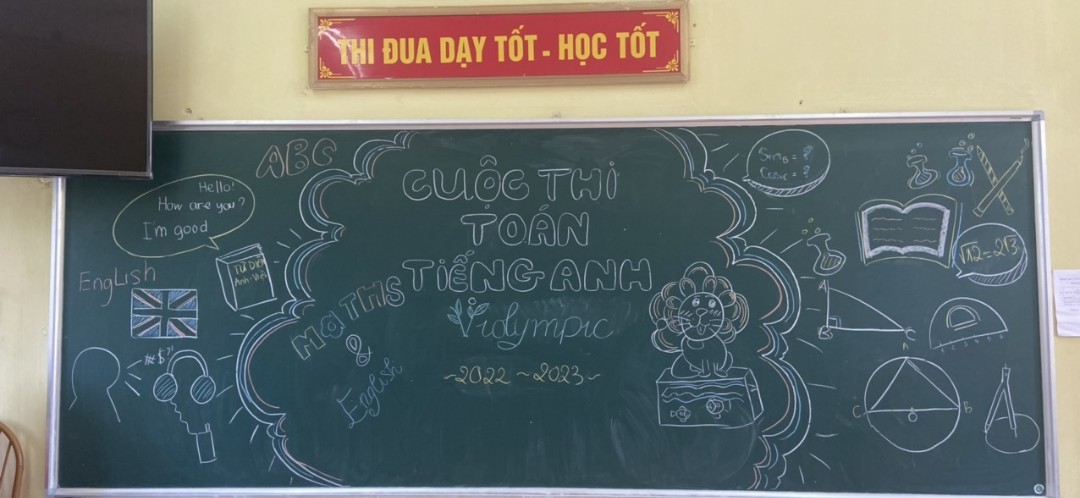 THI ĐUA DẠY TỐT - HỌC TỐT
ABC
Hello!
How are you?
I'm good
English
TỪ ĐIỂN
Anh-Việt
#$?!
CUỘC THI
TOÁN
TIẾNG ANH
Violympic
~2022~2023~
MaTHS
&
English
SinB = ?
CosC = ?
√12=2√3
A
B
C
A
C
O
B